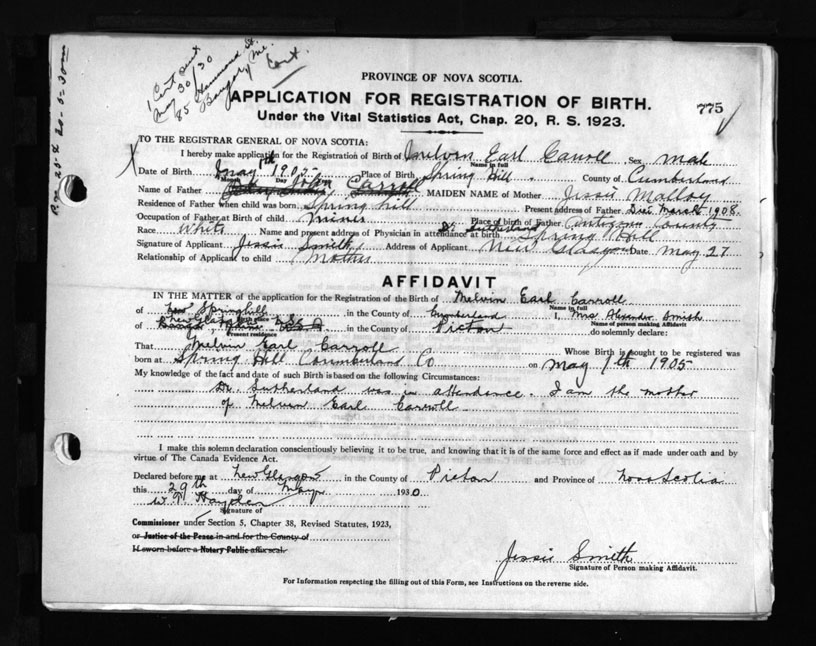 1 Cert sent
May 30/30
85 Hammond St.
Bangor, Me.
Cert.
PROVINCE OF NOVA SCOTIA.
APPLICATION FOR REGISTRATION OF BIRTH.
775
Under the Vital Statistics Act, Chap. 20, R. S. 1923.
TO THE REGISTRAR GENERAL OF NOVA SCOTIA:
I hereby make application for the Registration of Birth of Melvin Earl Carroll Sex Male
Name in full
Date of Birth May 1th 1905 Place of Birth Spring Hill. County of Cumberland
Month Day
Name of Father John Carroll MAIDEN NAME of Mother Jessie Malloy
Residence of Father when child was born Spring hill Present address of Father Died March 1908.
Occupation of Father at Birth of child miner Place of birth of Father Antigonis County
Race White Name and present address of Physician in attendance at birth Dr Sutherland Spring Hill
Signature of Applicant Jessie Smith Address of Applicant New Glasgow Date May 27
Relationship of Applicant to child Mother
AFFIDAVIT
IN THE MATTER of the application for the Registration of the Birth of Melvin Earl Carroll
Name in full
of Springhill in the County of Cumberland I, Mrs Alexander Smith
Birth place Name of person making Affidavit
of New Glasgow N.S. in the County of Picton do solemnly declare:
That Melvin Earl Carroll Whose Birth is sought to be registered was
born at Spring Hill Coumberland Co on May 1th 1905
My knowledge of the fact and date of such Birth is based on the following Circumstances:
Dr. Sutherland was in attendence. I am the mother
of Melvin Earl Carroll
I make this solemn declaration conscientiously believing it to be true, and knowing that it is of the same force and effect as if made under oath and by
virtue of The Canada Evidence Act.
Declared before me at New Glasgow in the County of Picton and Province of Nova Scotia
this 29th day of May 1930
Signature of
Commissioner under Section 5, Chapter 38, Revised Statutes, 1923,
or Justice of the Peace in and for the County of
If sworn before a Notary Public affix seal
Jessie Smith
Signature of Person making Affidavit.
For Information respecting the filling out of this Form, see Instructions on the reverse side.